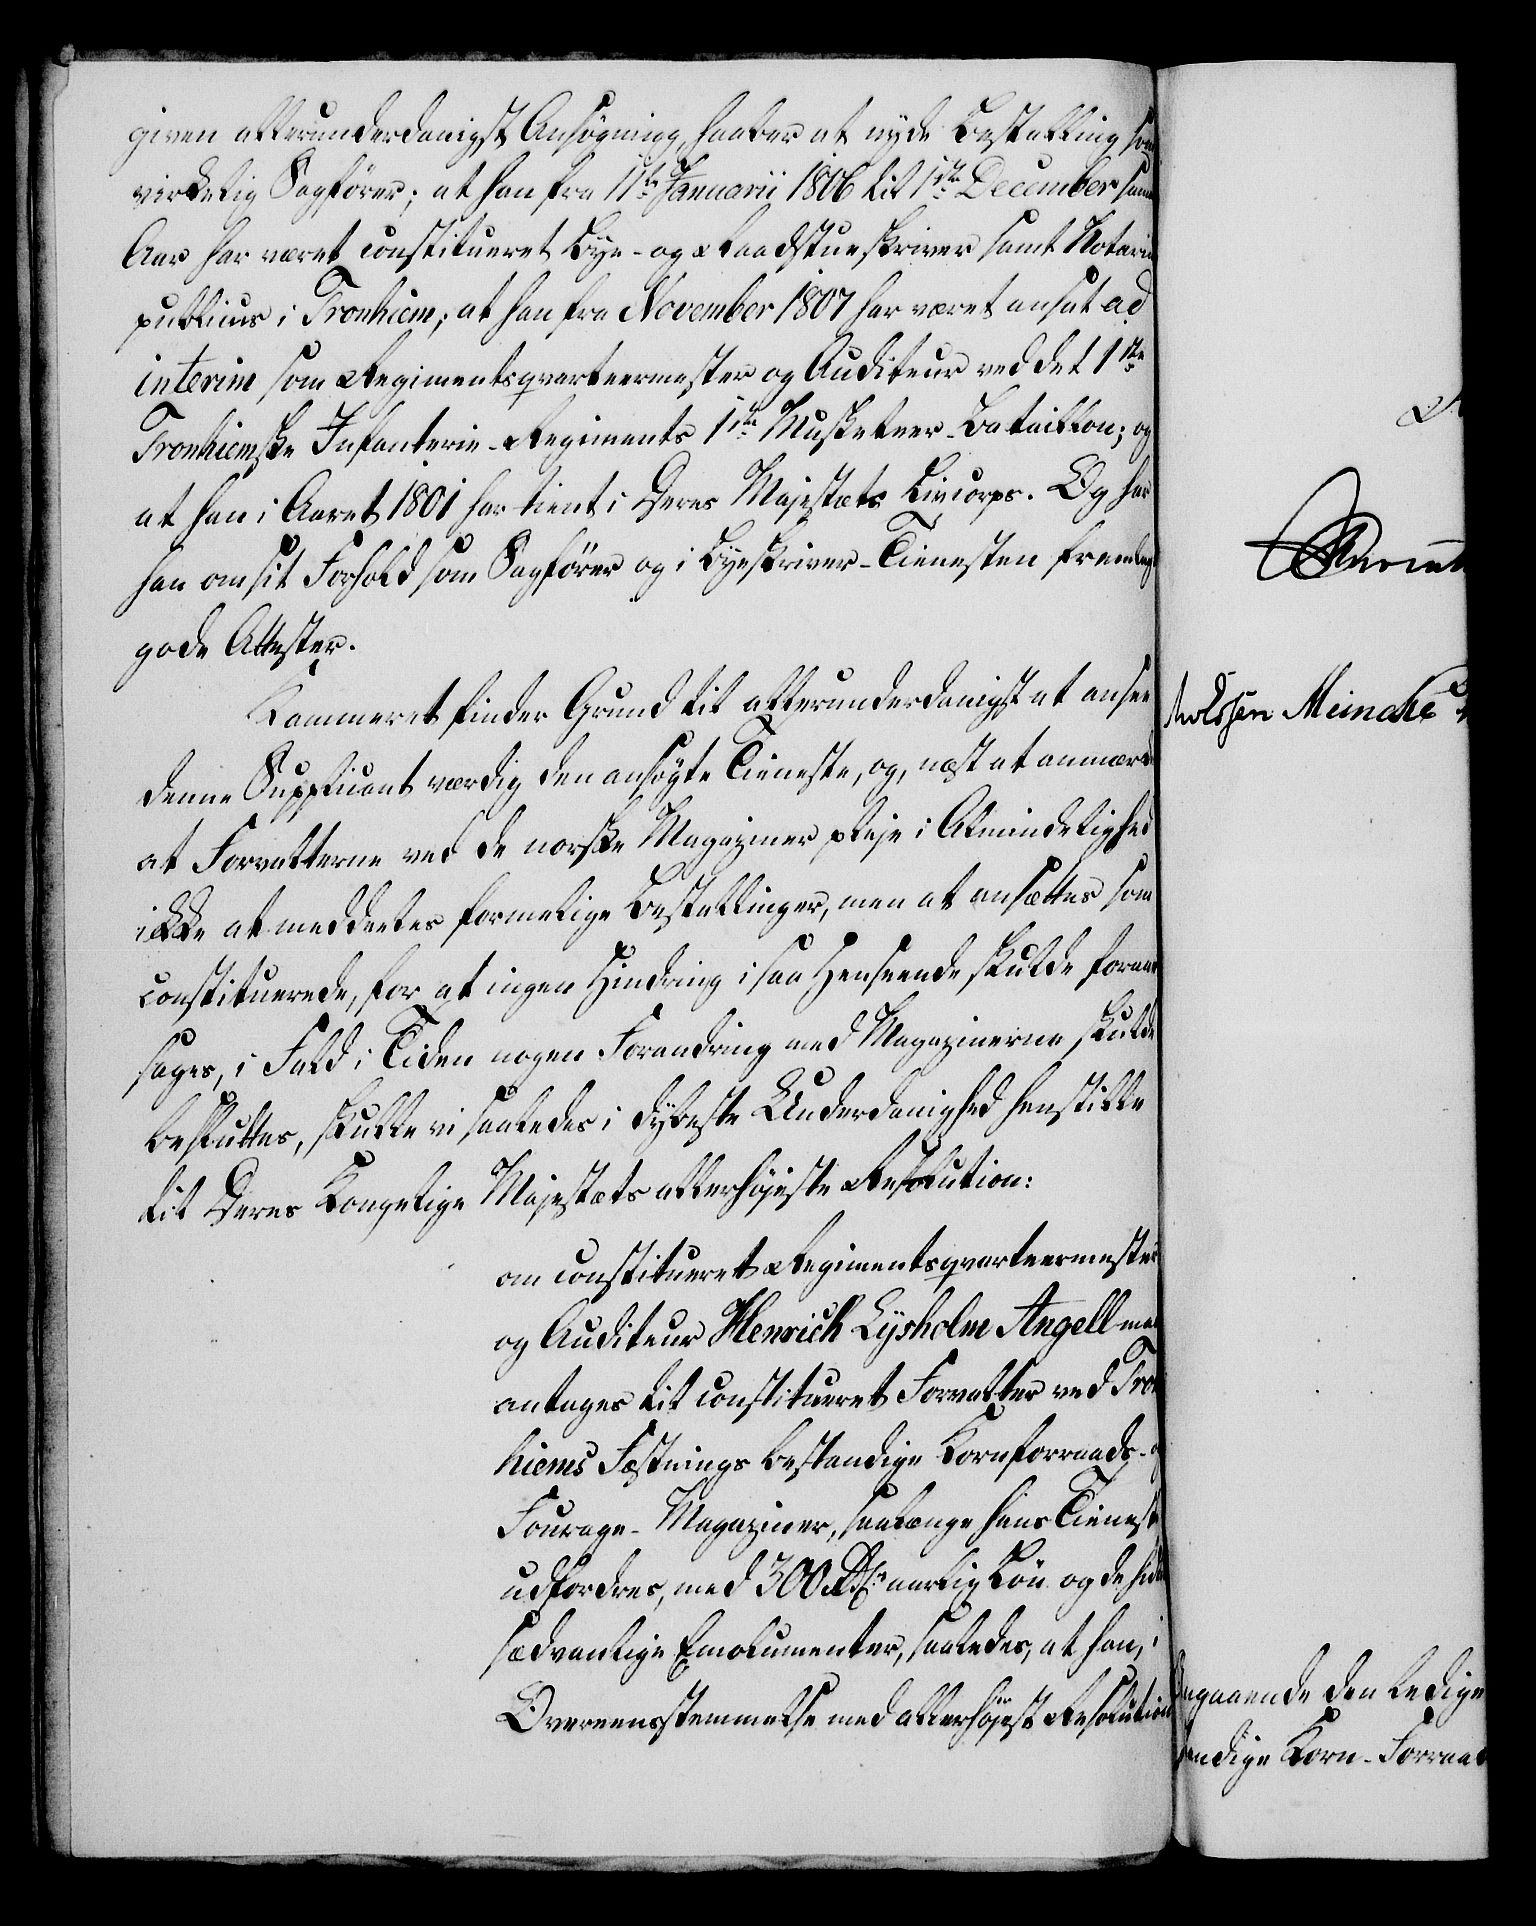 given allerunderdanigst Ansøgning, haaber at nyde Bestalling som
virkelig Sagfører; at han fra 11te Januarii 1806 til 1ste December samme
Aar har været constitueret Bye- og Raadstueskriver samt Notarius
publicus i Tronhiem; at han fra November 1807 har været ansat ad
interim som Regimentsqvarteermester og Auditeur ved det 1ste
Tronhiemske Infanterie-Regiments 1ste Musketeer-Bataillon; og
at han i Aaret 1801 har tient i Deres Majestæts Livcorps. Og har
han om sit Forhold som Sagfører og i Byeskriver-Tienesten fremlagt
gode Attester.
Kammeret finder Grund til allerunderdanigst at ansee
denne Supplicant værdig den ansøgte Tieneste, og, næst at anmærke
at Forvalterne ved de norske Magaziner pleje i Almindelighed
ikke at meddeeles formelige Bestallinger, men at ansættes som
constituerede, for at ingen Hindring i saa Henseende skulde foraar-
sages, i Fald i Tiden nogen Forandring med Magazinerne skulde
besluttes, skulle vi saaledes i dybeste Underdanighed henstille
til Deres Kongelige Majestæts allerhøjeste Resolution:
om constitueret Regimentsqvarteermester
og Auditeur Henrich Lysholm Angell maa
antages til constitueret Forvalter ved Tron-
hiems Fæstnings bestandige Kornforraads- og
Fourage-Magaziner, saalænge hans Tieneste
udfordres, med 300 Rdr aarlig Løn og de hidtil
sædvanlige Emolumenter, saaledes, at han, i
Overeensstemmelse med allerhøjest Resolution
Meincke
angaaende den ledige
andige Korn-Forraad